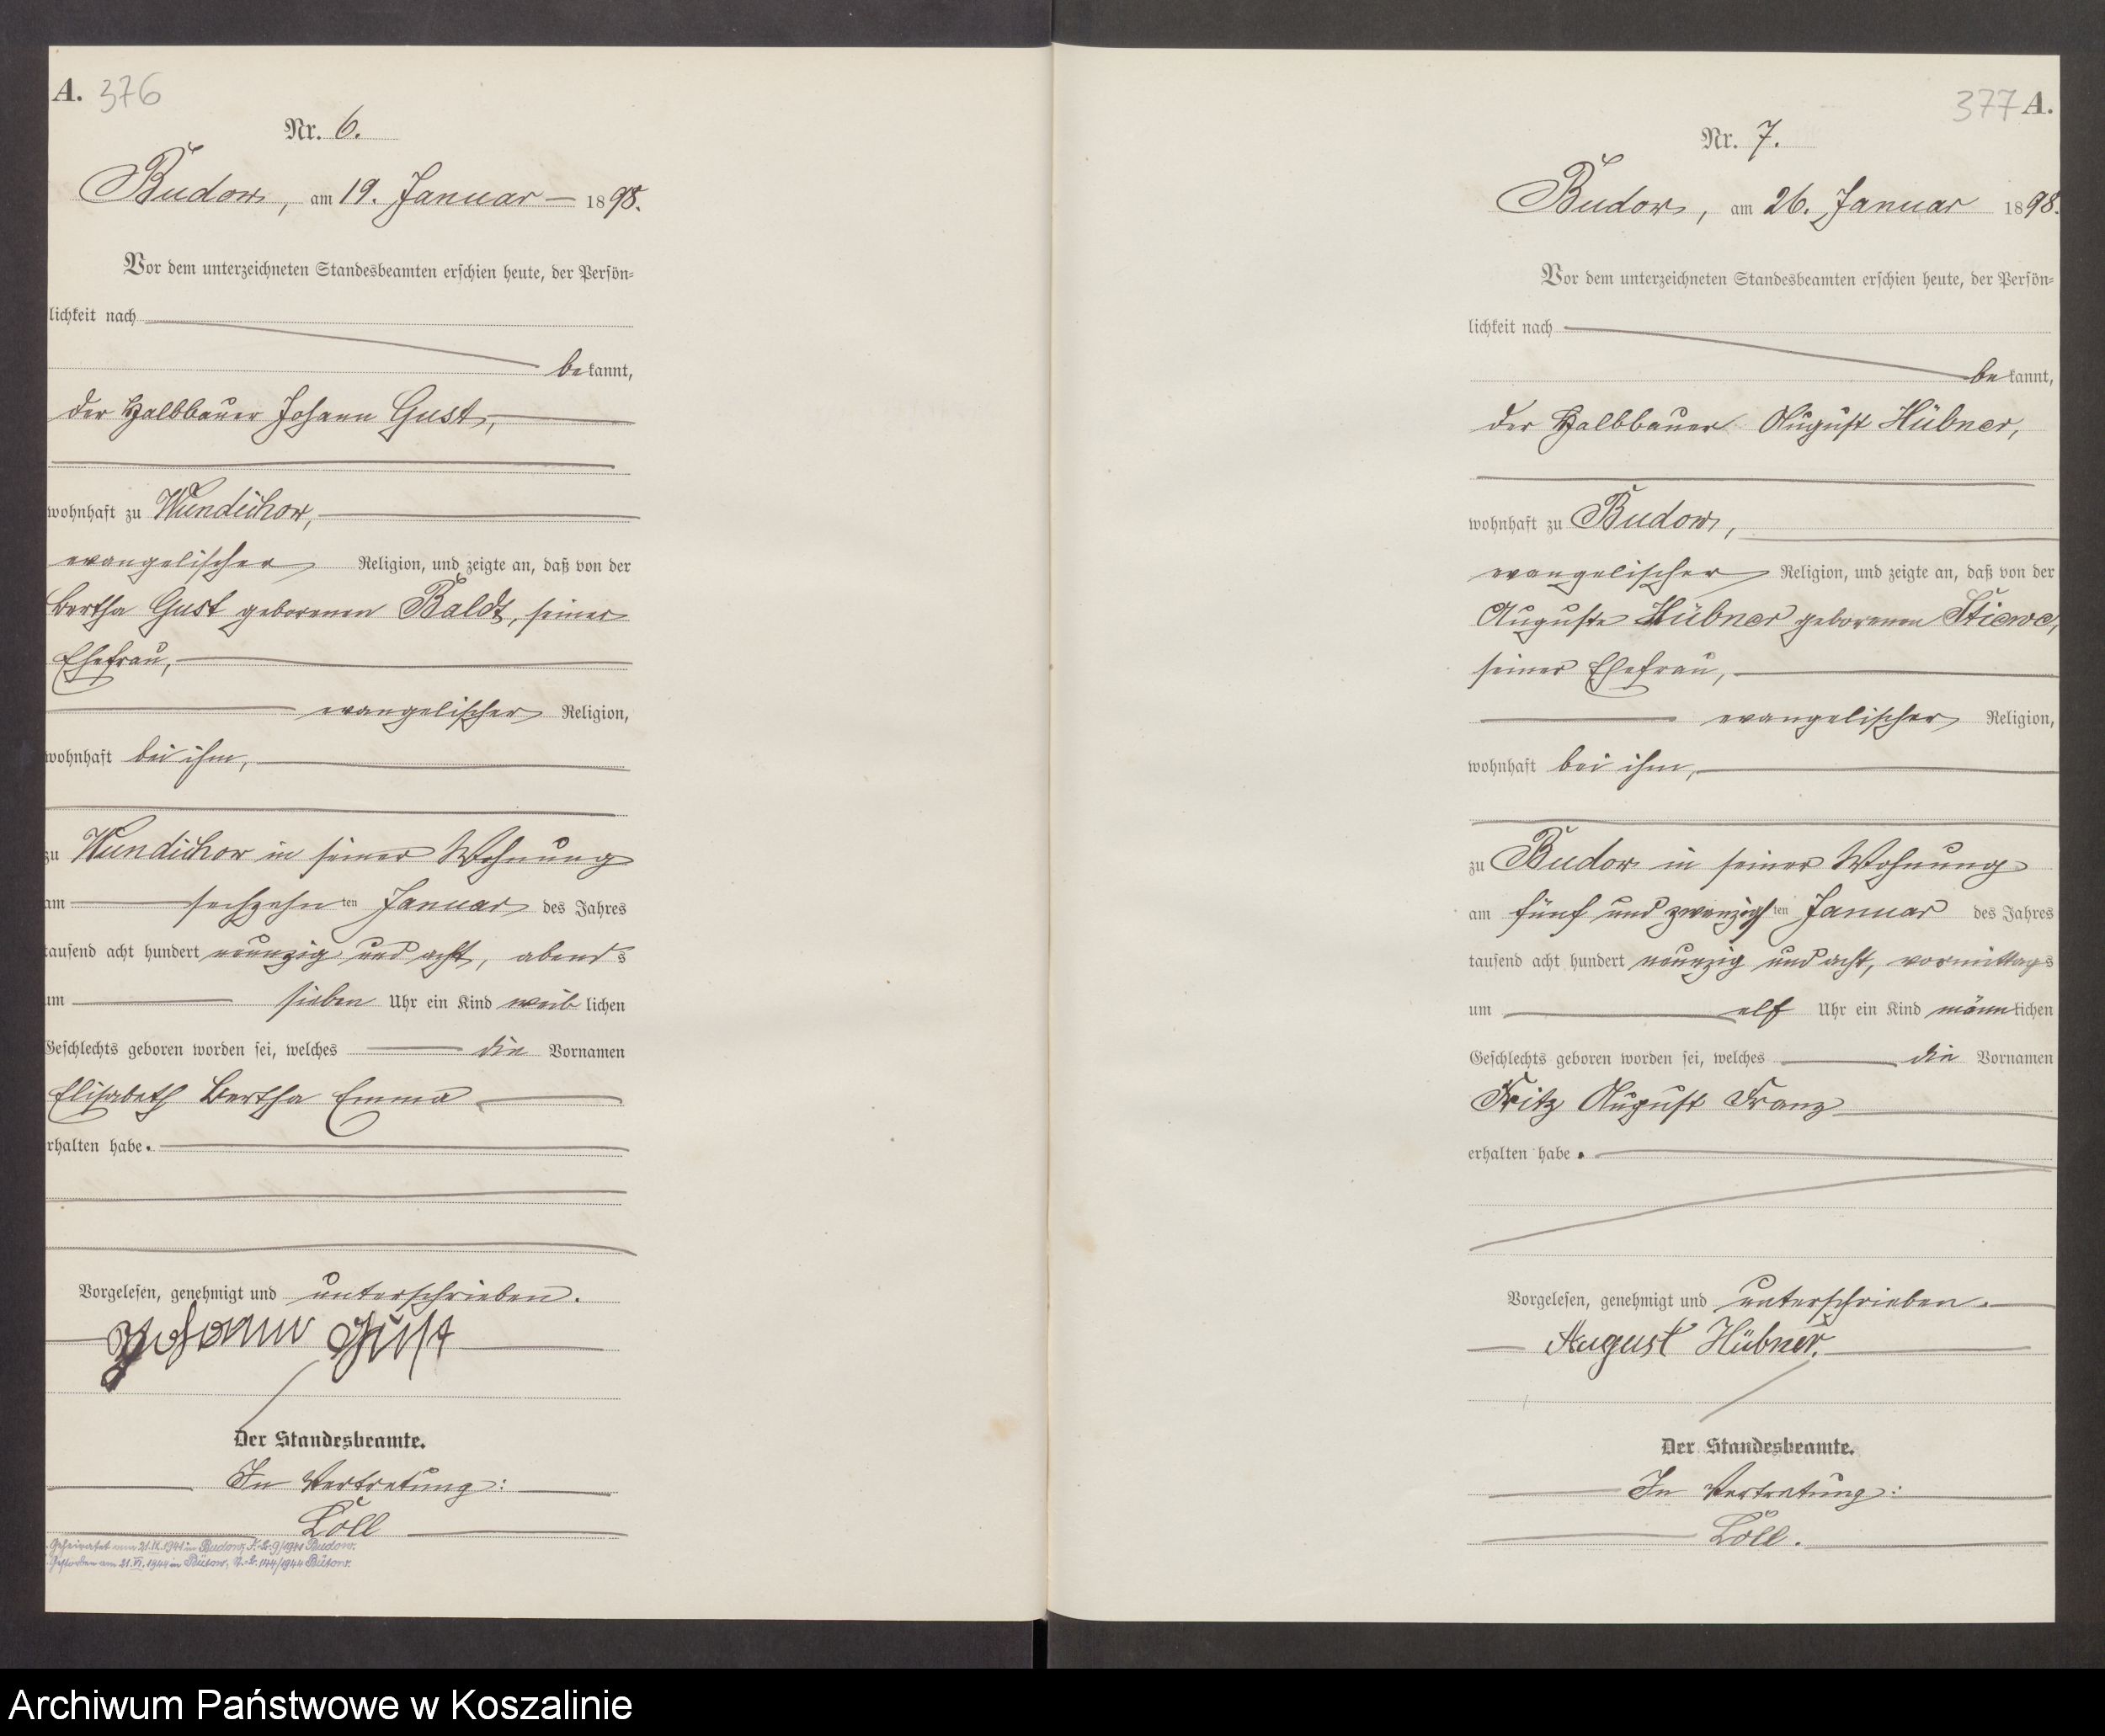 A. 376
Nr. 6.
Budow, am 19. Januar 1898.
Vor dem unterzeichneten Standesbeamten erschien heute, der Persön-
lichkeit nach
bekannt,
der Halbbauer Johann Gust,
wohnhaft zu Wundichow,
evangelischer Religion, und zeigte an, daß von der
Bertha Gust geborenen Baldt, seiner
Ehefrau,
evangelischer Religion,
wohnhaft bei ihm,
zu Wundichow in seiner Wohnung
am sechzehnten Januar des Jahres
tausend acht hundert neunzig und acht, abends
um sieben Uhr ein Kind weiblichen
Geschlechts geboren worden sei, welches die Vornamen
Elisabeth Bertha Emma
erhalten habe.
Vorgelesen, genehmigt und unterschrieben.
Johann Gust
Der Standesbeamte.
In Vertretung:
Löll
Geheiratet am 21.IX.1941 in Budow, F.-B. 9/1941 Budow.
Gestorben am 21.VI.1944 in Bütow, 144/1944 Bütow.
377 A.
Nr. 7.
Budow, am 26. Januar 1898.
Vor dem unterzeichneten Standesbeamten erschien heute, der Persön-
lichkeit nach
bekannt,
der Halbbauer August Hübner,
wohnhaft zu Budow,
evangelischer Religion, und zeigte an, daß von der
Auguste Hübner geborenen Stiewe,
seiner Ehefrau,
evangelischer Religion,
wohnhaft bei ihm,
zu Budow in seiner Wohnung
am fünf und zwanzigsten Januar des Jahres
tausend acht hundert neunzig und acht, vormittags
um elf Uhr ein Kind männlichen
Geschlechts geboren worden sei, welches die Vornamen
Fritz August Franz
erhalten habe.
Vorgelesen, genehmigt und unterschrieben.
August Hübner.
Der Standesbeamte.
In Vertretung:
Löll.
Archiwum Państwowe w Koszalinie